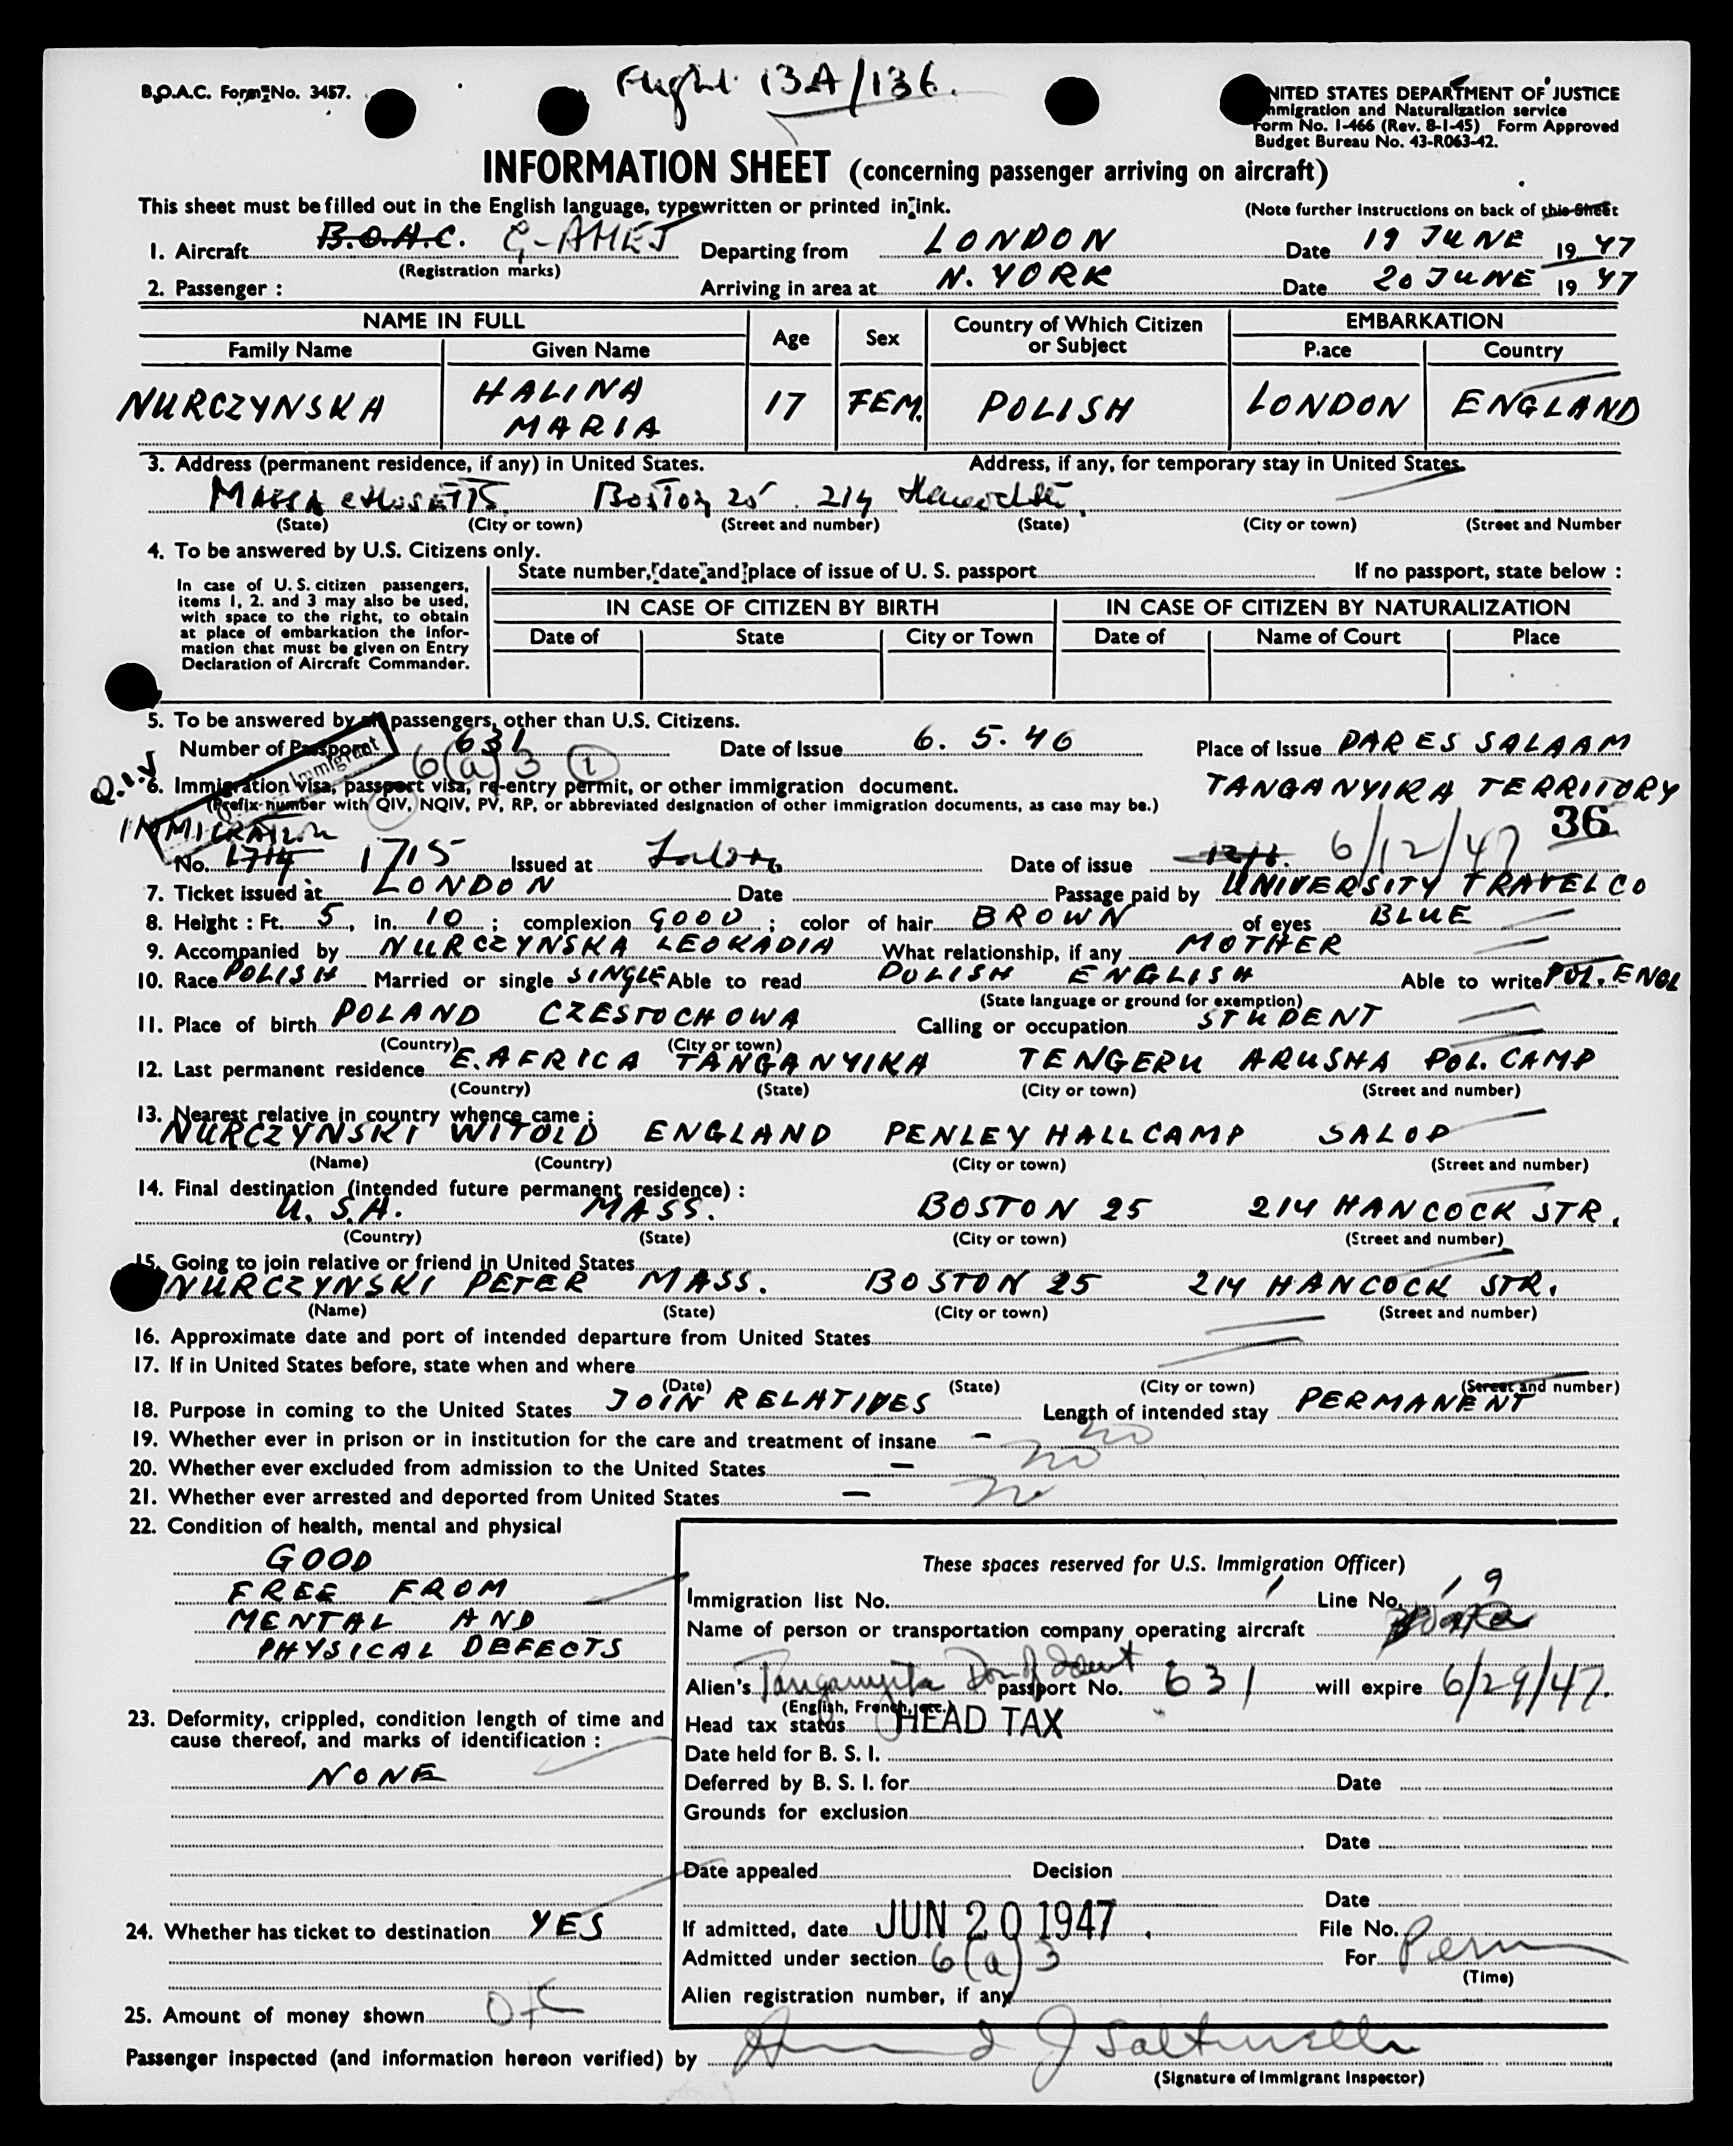 B.O.A.C. Form No. 3457.
Flight 13A/136.
UNITED STATES DEPARTMENT OF JUSTICE
Immigration and Naturalization service
Form No. I-466 (Rev. 8-1-45) Form Approved
Budget Bureau No. 43-R063-42.
INFORMATION SHEET (concerning passenger arriving on aircraft)
This sheet must be filled out in the English language, typewritten or printed in ink.
(Note further instructions on back of this Sheet
1. Aircraft B.O.A.C. G-AHEJ Departing from LONDON Date 19 JUNE 1947
(Registration marks)
2. Passenger : Arriving in area at N. YORK Date 20 JUNE 1947
NAME IN FULL Age Sex Country of Which Citizen or Subject EMBARKATION
Family Name Given Name P.ace Country
NURCZYNSKA HALINA MARIA 17 FEM. POLISH LONDON ENGLAND
3. Address (permanent residence, if any) in United States. Address, if any, for temporary stay in United States.
MASSACHUSETTS Boston 25 214
(State) (City or town) (Street and number) (State) (City or town) (Street and Number
4. To be answered by U.S. Citizens only.
State number, date and place of issue of U. S. passport If no passport, state below :
In case of U. S. citizen passengers,
items 1, 2. and 3 may also be used,
with space to the right, to obtain
at place of embarkation the infor-
mation that must be given on Entry
Declaration of Aircraft Commander.
IN CASE OF CITIZEN BY BIRTH IN CASE OF CITIZEN BY NATURALIZATION
Date of State City or Town Date of Name of Court Place
5. To be answered by all passengers, other than U.S. Citizens.
Number of Passport 631 Date of Issue 6. 5. 46 Place of Issue DAR ES SALAAM
Immigrant 6(a)3 i
Q.I.V
6. Immigration visa, passport visa, re-entry permit, or other immigration document. TANGANYIKA TERRITORY
(Prefix number with QIV, NQIV, PV, RP, or abbreviated designation of other immigration documents, as case may be.)
36
IMMIGRATION
No. 1714 1715 Issued at London Date of issue 12/6. 6/12/47
7. Ticket issued at LONDON Date Passage paid by UNIVERSITY TRAVEL CO
8. Height : Ft. 5, in. 10 ; complexion GOOD ; color of hair BROWN of eyes BLUE
9. Accompanied by NURCZYNSKA LEOKADIA What relationship, if any MOTHER
10. Race POLISH Married or single SINGLE Able to read POLISH ENGLISH Able to write POL. ENGL
(State language or ground for exemption)
11. Place of birth POLAND CZESTOCHOWA Calling or occupation STUDENT
(Country) (City or town)
12. Last permanent residence E. AFRICA TANGANYIKA TENGERU ARUSHA POL. CAMP
(Country) (State) (City or town) (Street and number)
13. Nearest relative in country whence came :
NURCZYNSKI WITOLD ENGLAND PENLEY HALL CAMP SALOP
(Name) (Country) (City or town) (Street and number)
14. Final destination (intended future permanent residence) :
U. S.A. MASS. BOSTON 25 214 HANCOCK STR.
(Country) (State) (City or town) (Street and number)
15. Going to join relative or friend in United States
NURCZYNSKI PETER MASS. BOSTON 25 214 HANCOCK STR.
(Name) (State) (City or town) (Street and number)
16. Approximate date and port of intended departure from United States
17. If in United States before, state when and where
(Date) (State) (City or town) (Street and number)
18. Purpose in coming to the United States JOIN RELATIVES Length of intended stay PERMANENT
19. Whether ever in prison or in institution for the care and treatment of insane - no
20. Whether ever excluded from admission to the United States - no
21. Whether ever arrested and deported from United States - no
22. Condition of health, mental and physical
GOOD
FREE FROM
MENTAL AND
PHYSICAL DEFECTS
23. Deformity, crippled, condition length of time and
cause thereof, and marks of identification :
NONE
24. Whether has ticket to destination YES
25. Amount of money shown
These spaces reserved for U.S. Immigration Officer)
Immigration list No. 1 Line No. 19
Name of person or transportation company operating aircraft
Alien's Tanganyika passport No. 631 will expire 6/29/47.
(English, French, etc.)
Head tax status HEAD TAX
Date held for B. S. I.
Deferred by B. S. I. for Date
Grounds for exclusion
Date
Date appealed Decision
Date
If admitted, date JUN 20 1947 File No.
Admitted under section 6(a)3 For Perm
(Time)
Alien registration number, if any
Passenger inspected (and information hereon verified) by
(Signature of Immigrant Inspector)